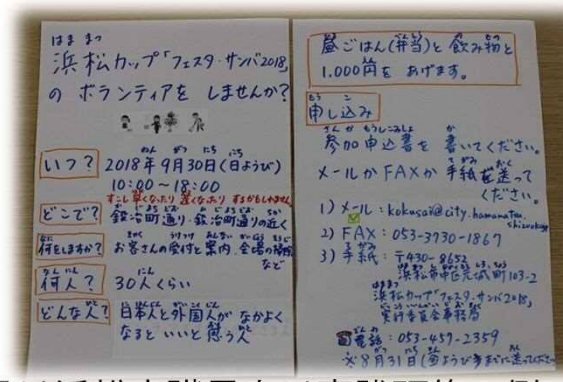 はままつ
浜松カップ「フェスタ・サンバ2018」
の ボランティアを しませんか?
いつ? 2018年9月30日(日ようび)
10:00~18:00
すこし 早くなったり 遅くなったり するかもしれません
どこで? 鍛冶町通り・鍛冶町通りの近く
何をしますか? お客さんの受付と案内、会場の掃除
など
何人? 30人くらい
どんな人? 日本人と外国人が なかよく
なると いいと 思う人
昼ごはん(弁当)と 飲み物と
1,000円を あげます。
申し込み
参加申込書を 書いてください。
メールか FAXか 手紙を送って
ください。
1)メール:kokusai@city.hamamatsu.
shizuoka
2)FAX:053-3730-1867
3)手紙:〒430-8652
浜松市中区元城町103-2
はままつ
浜松カップ「フェスタ・サンバ2018」
実行委員会事務局
電話:053-457-2359
※8月31日(金ようび)までに送ってください